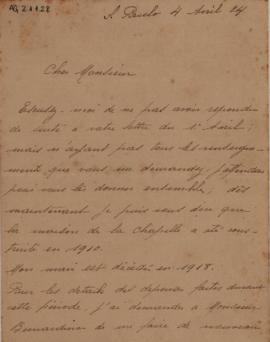 S. Paulo 4 Avril 24
Cher Monsieur
Excusez-moi de ne pas avoir répondu
de suite à votre lettre du 1er Avril;
mais n'ayant pas tous les renseigne-
ments que vous me demandez, j'attendais
pour vous les donner ensemble; dès
maintenant je puis vous dire que
la maison de la Chapelle a été cons-
truite en 1910.
Mon mari est décédé en 1918.
Pour les details des dépenses faites durant
cette période, j'ai demandé à Monsieur
Bernardino de me faire de nouveau